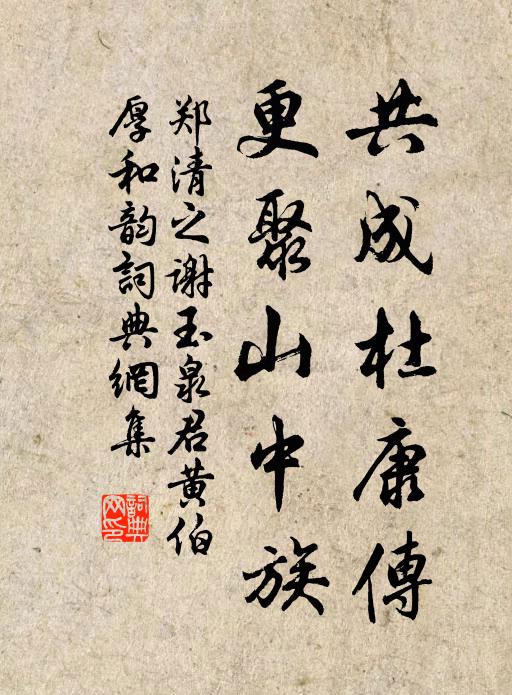 共成杜康傳
更聚山中族
郑清之谢玉泉君黄伯
厚和韵詞典網集
詞典网印